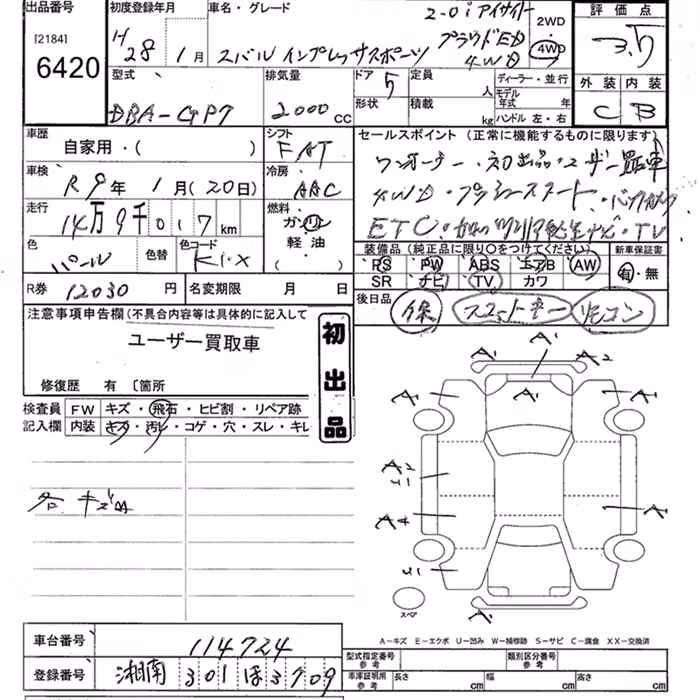 出品番号
[2184]
6420
初度登録年月
H28 1月
車名・グレード
スバル インプレッサスポーツ
2.0i アイサイト
プラウドED
4WD
2WD
4WD
評価点
3.5
外装 内装
C B
型式
DBA-GP7
排気量
2000 CC
ドア 5
形状
定員 人
積載 kg
ディーラー・並行
モデル年式 年
ハンドル 左・右
車歴
自家用・( )
シフト
FAT
車検
R9年 1月(20日)
冷房
AAC
走行
14万9千017km
燃料
ガソリン
軽油
( )
色
パール
色替
色コード
K1X
セールスポイント (正常に機能するものに限ります)
ワンオーナー・初出品・ユーザー買取車
4WD・プッシュスタート・バックカメラ
ETC・
ナビ・TV
装備品(純正品に限り○をつけてください)
新車保証書
PS PW ABS エアB AW
有・無
SR ナビ TV カワ
R券 12030 円
名変期限 月 日
後日品
保 スマートキー リモコン
注意事項申告欄(不具合内容等は具体的に記入して
ユーザー買取車
修復歴 有 〔箇所
初出品
検査員
記入欄
FW キズ・飛石・ヒビ割・リペア跡
内装 キズ・汚レ・コゲ・穴・スレ・キレ
各キズ
A1
A1 A2
A1 A1 A1
A2
U1
A4 A1
U1
スペア
A1
A-キズ E-エクボ U-凹み W-補修跡 S-サビ C-腐食 XX-交換済
車台番号 114724
登録番号 湘南 301 ほ 3709
型式指定番号
参考
類別区分番号
参考
車庫証明用
参考
長さ cm
幅 cm
高さ cm